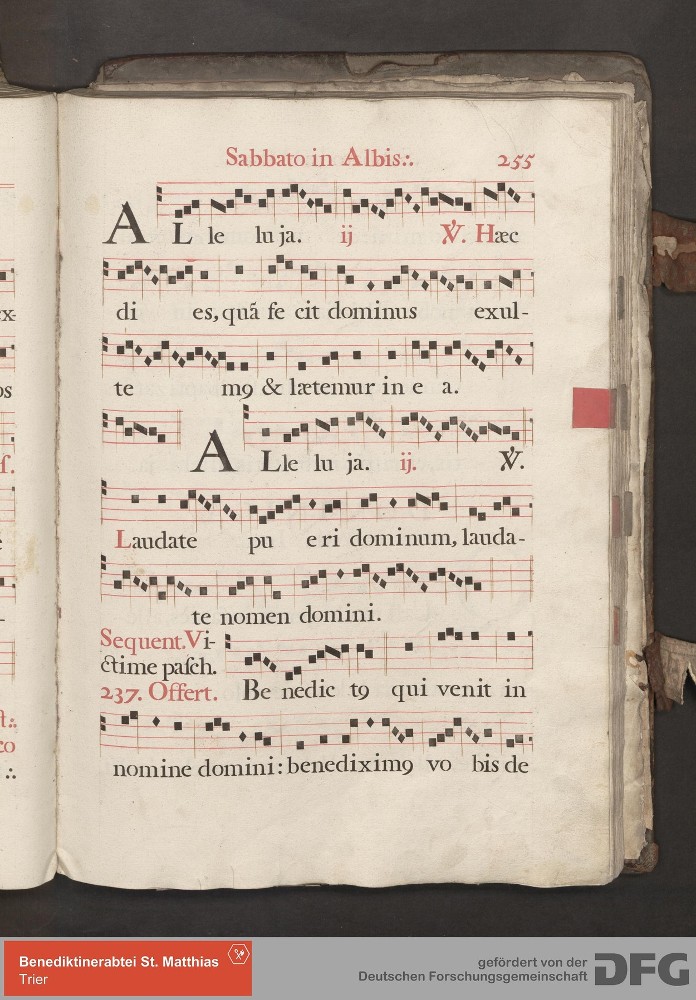 Sabbato in Albis∴ 255
AL le lu ja. ij ℣. Hæc
di es, quã fe cit dominus exul-
te m9 & lætemur in e a.
ALle lu ja. ij. ℣.
Laudate pu e ri dominum, lauda-
te nomen domini.
Sequent. Vi-
ctime pasch.
237. Offert. Be nedic t9 qui venit in
nomine domini: benedixim9 vo bis de
Benediktinerabtei St. Matthias
Trier
gefördert von der
Deutschen Forschungsgemeinschaft DFG